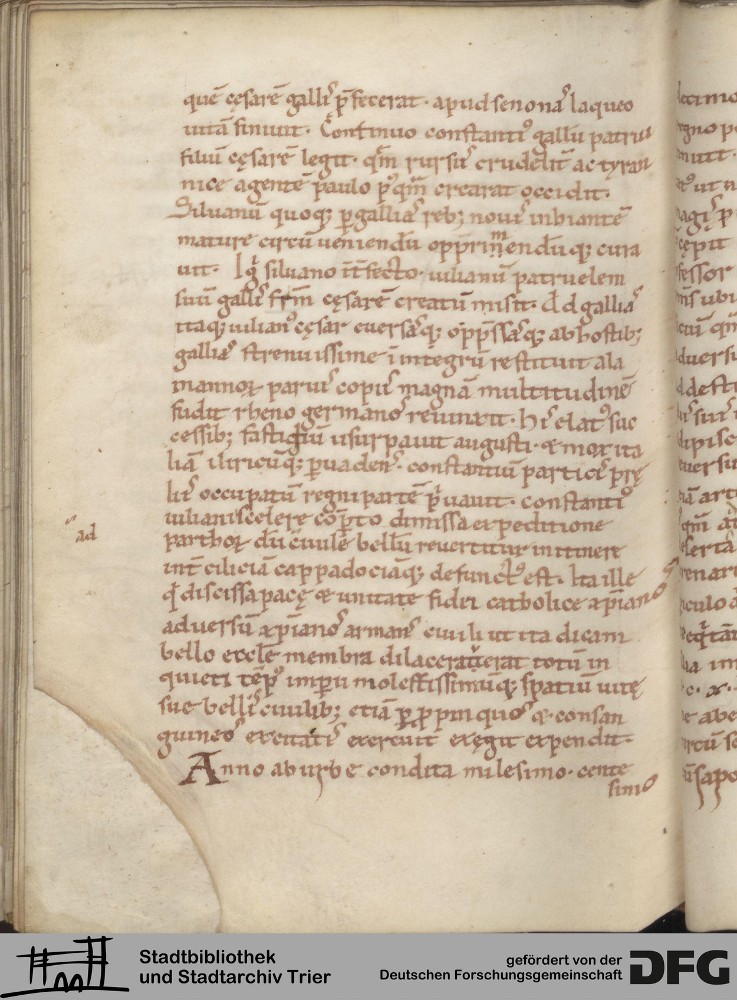 quē cęsarē galliˢ p̄fecerat · apud senonaˢ laqueo
uitā finiuit · Continuo constantiꝰ gallū patruiˢ
filiū cęsarē legit · quē rursuˢ crudelit̄ ac tyran
nice agentē paulo pꝰ qm̄ crearat occidit ·
Siluanū quoq; p galliaˢ reb; nouiˢ inhiantē
mature circūueniendū opp̄rimendūq; cura
uit · Igr̄ siluano int̄fecto · iulianū patruelem
suū galliˢ frm̄ cęsarē creatū misit · Ad galliaˢ
itaq; iulianꝰ cęsar euersaˢq; opp̄ssaˢq; ab hostib;
galliaˢ strenuissime ī integrū restituit ala
mannoꝝ paruiˢ copiiˢ magnā multitudinē
fudit rheno germanoˢ reuinxit · hiˢ elatꝰ suc
cessib; fastigiū usurpauit augusti · & mox ita
liā iliricūq; puadenˢ · constantiū particiˢ prę
liiˢ occupatū regni parte p̄uauit · constantiꝰ
iuliani scelere cōp̄to dimissa expeditione
ad
parthoꝝ dū ciuile bellū reuertitur in itinere
int̄ ciliciā cappadociāq; defunctꝰ est · Ita ille
qi discissa pace & unitate fidei catholice xp̄ianoˢ
aduersū xp̄ianoˢ armanˢ ciuili ut ita dicam
bello ecclę membra dilacerauerat totū in
quieti tēpꝰ imperii molestissimūq; spatiū uitę
sue belliˢ ciuilib; etiā p ppinquoˢ & consan
guineoˢ excitatiˢ exercuit exęgit expendit ·
Anno ab urbe condita milesimo · cente
simo
Stadtbibliothek
und Stadtarchiv Trier
gefördert von der
Deutschen Forschungsgemeinschaft
DFG